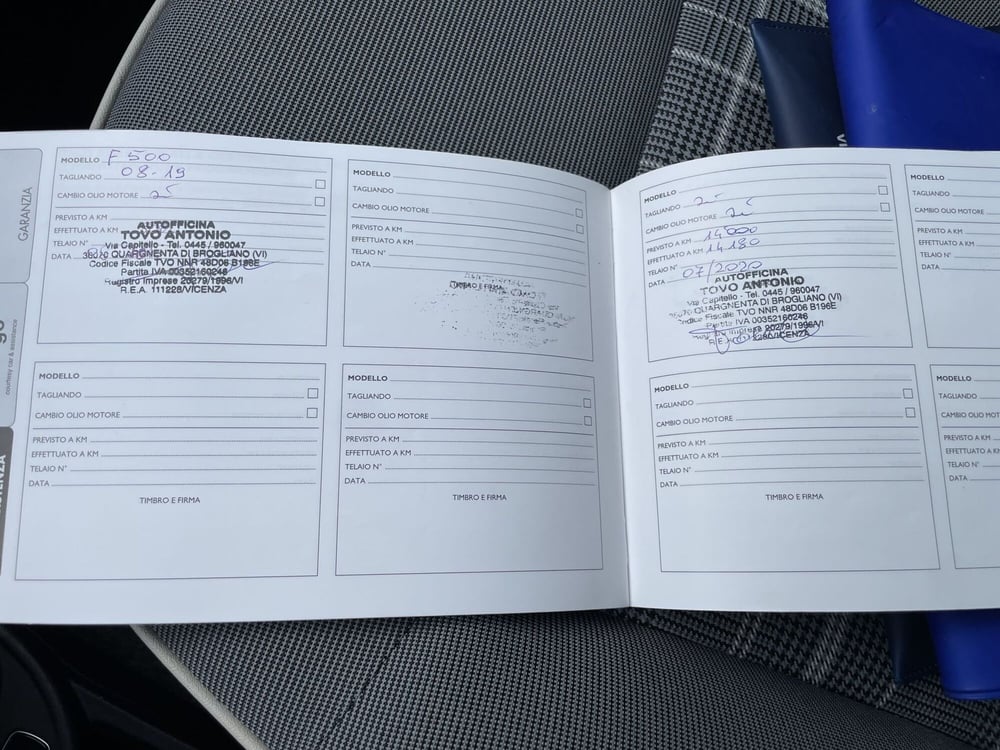 GARANZIA
courtesy car & assistance
MODELLO F 500
TAGLIANDO 08-19
CAMBIO OLIO MOTORE
PREVISTO A KM
EFFETTUATO A KM
TELAIO N°
DATA
AUTOFFICINA
TOVO ANTONIO
Via Capitello - Tel. 0445 / 960047
36070 QUARGNENTA DI BROGLIANO (VI)
Codice Fiscale TVO NNR 48D06 B196E
Partita IVA 00352160246
Registro Imprese 20279/1996/VI
R.E.A. 111228/VICENZA
MODELLO
TAGLIANDO
CAMBIO OLIO MOTORE
PREVISTO A KM
EFFETTUATO A KM
TELAIO N°
DATA
TIMBRO E FIRMA
MODELLO
TAGLIANDO
CAMBIO OLIO MOTORE
PREVISTO A KM 14000
EFFETTUATO A KM 14180
TELAIO N°
DATA 07/2020
AUTOFFICINA
TOVO ANTONIO
Via Capitello - Tel. 0445 / 960047
36070 QUARGNENTA DI BROGLIANO (VI)
Codice Fiscale TVO NNR 48D06 B196E
Partita IVA 00352160246
Imprese 20279/1996/VI
R.E.A. VICENZA
MODELLO
TAGLIANDO
CAMBIO OLIO MOT
PREVISTO A KM
EFFETTUATO A KM
TELAIO N°
DATA
MODELLO
TAGLIANDO
CAMBIO OLIO MOTORE
PREVISTO A KM
EFFETTUATO A KM
TELAIO N°
DATA
TIMBRO E FIRMA
MODELLO
TAGLIANDO
CAMBIO OLIO MOTORE
PREVISTO A KM
EFFETTUATO A KM
TELAIO N°
DATA
TIMBRO E FIRMA
MODELLO
TAGLIANDO
CAMBIO OLIO MOTORE
PREVISTO A KM
EFFETTUATO A KM
TELAIO N°
DATA
TIMBRO E FIRMA
MODELLO
TAGLIANDO
CAMBIO OLIO MOT
PREVISTO A KM
EFFETTUATO A K
TELAIO N°
DATA